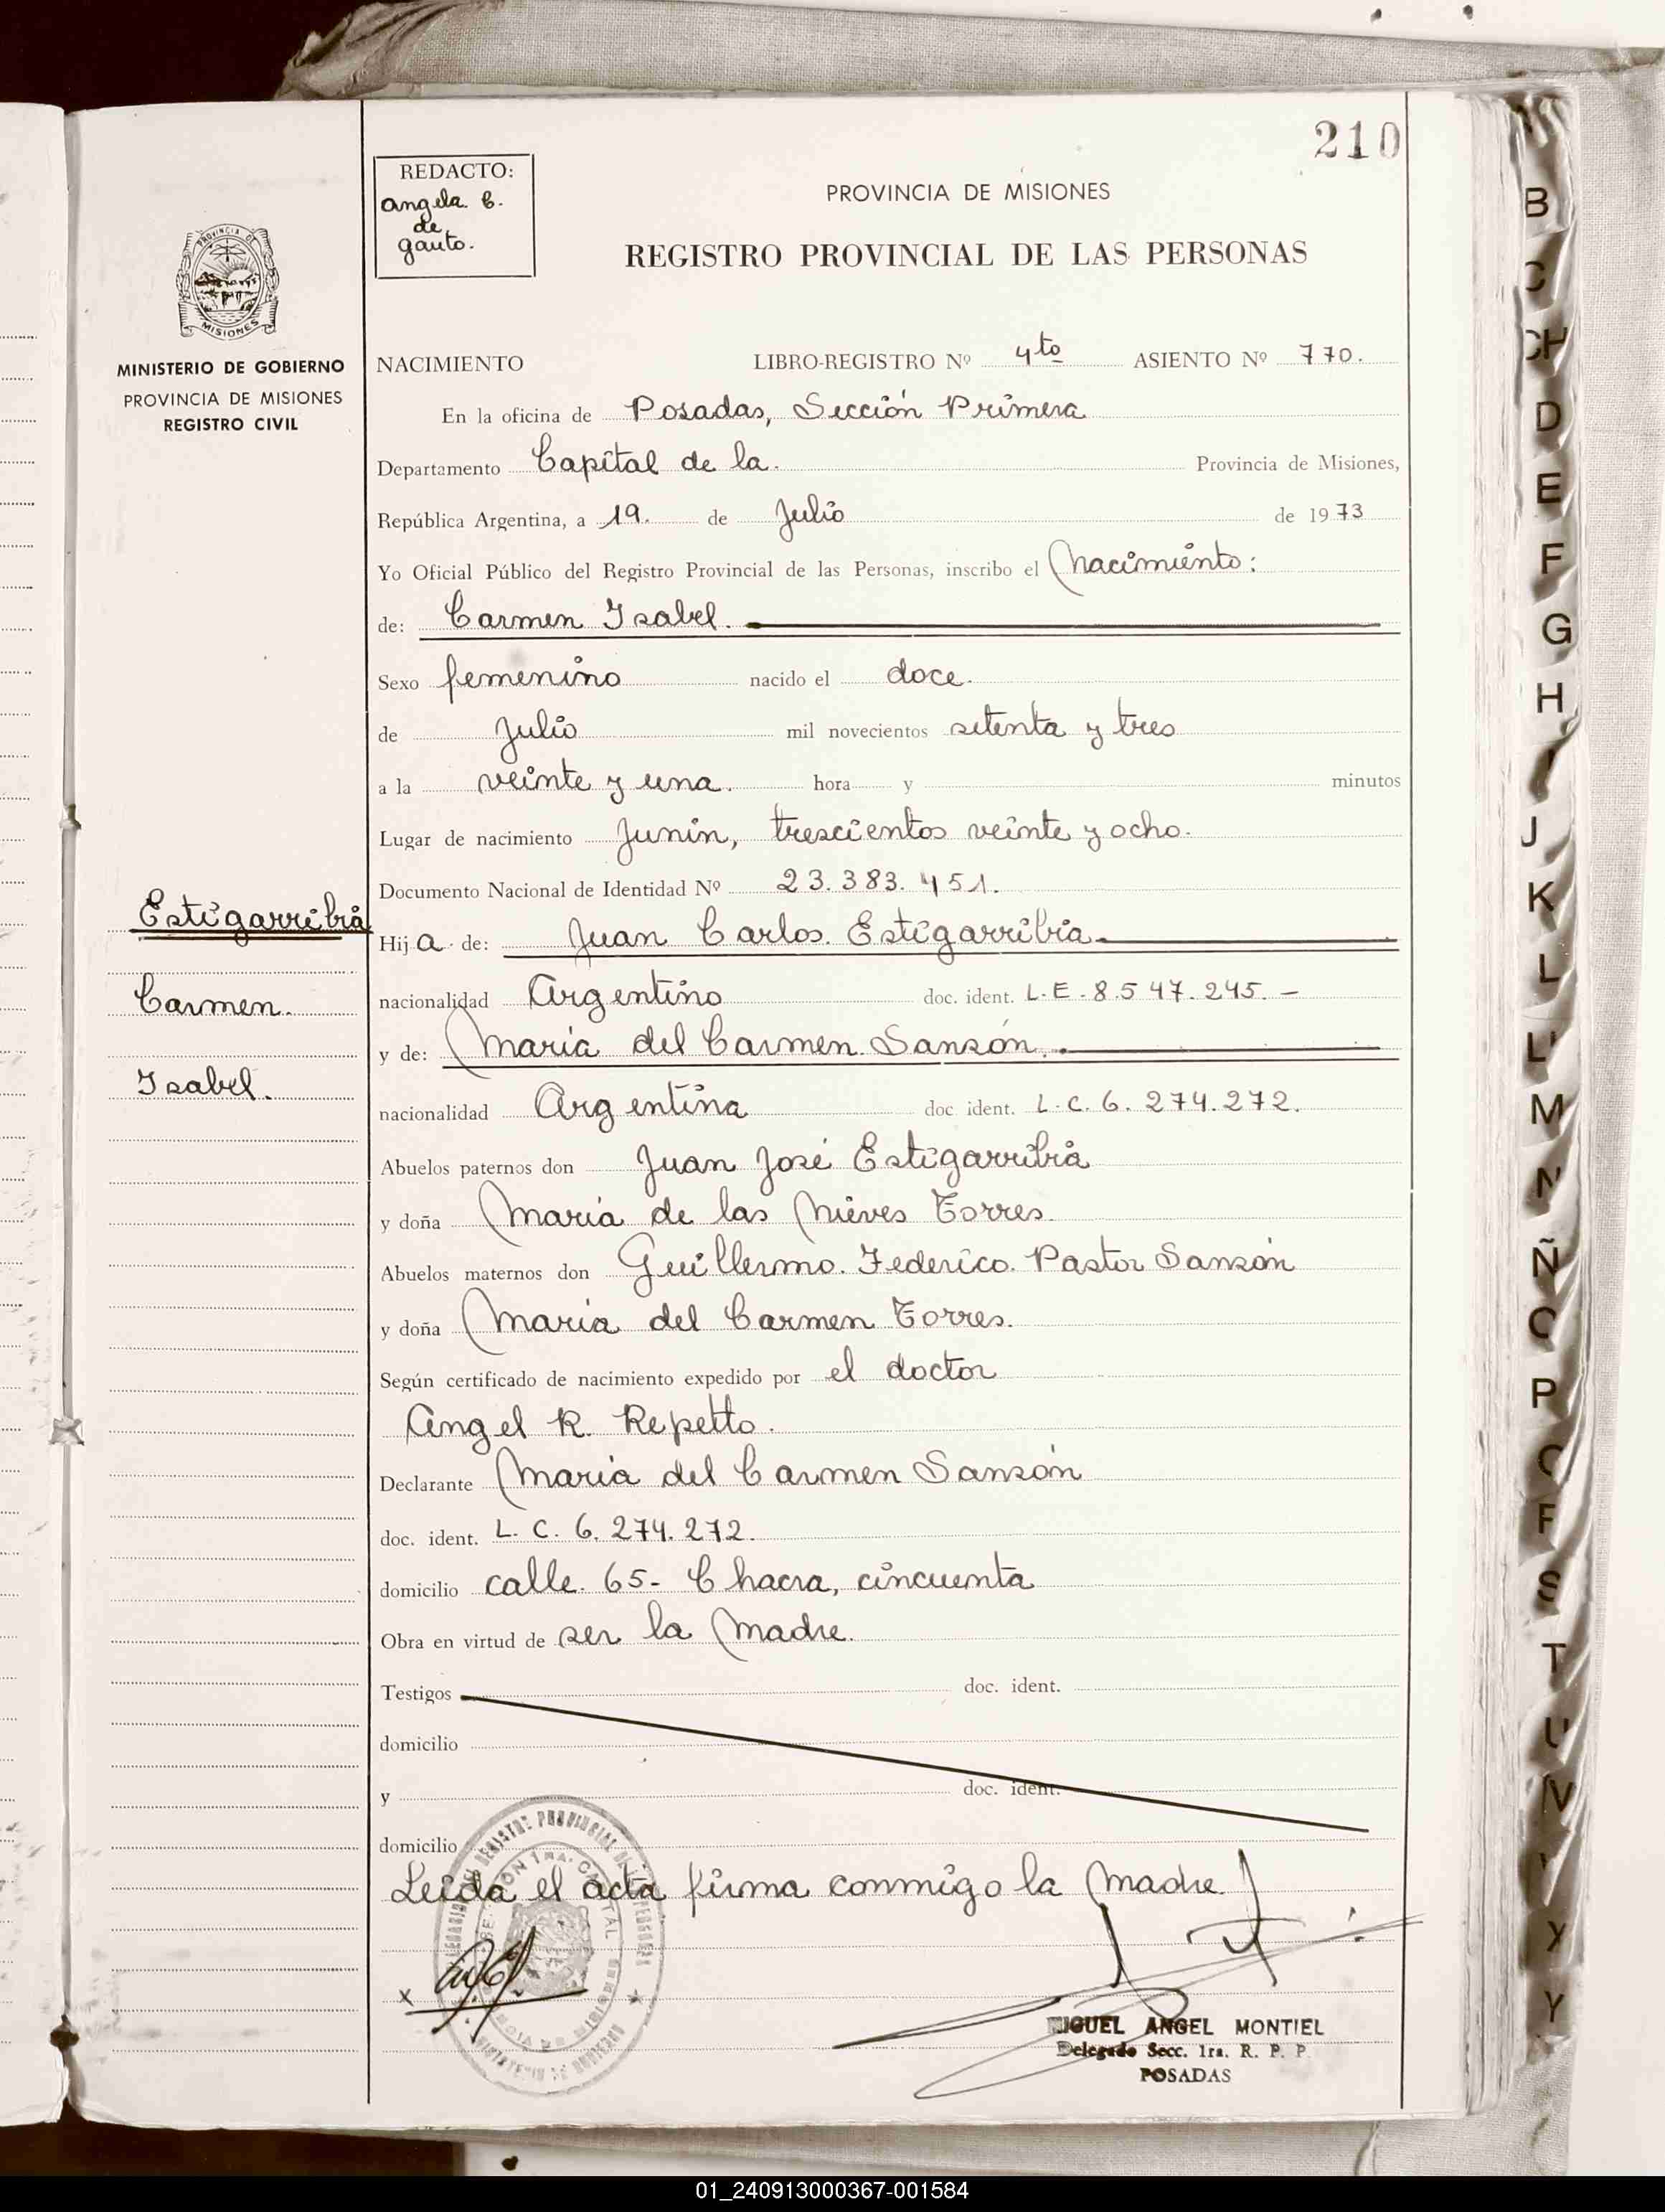 210
REDACTO:
angela C.
de
gauto.
PROVINCIA DE MISIONES
REGISTRO PROVINCIAL DE LAS PERSONAS
PROVINCIA DE
MISIONES
MINISTERIO DE GOBIERNO
PROVINCIA DE MISIONES
REGISTRO CIVIL
NACIMIENTO LIBRO-REGISTRO Nº 4to ASIENTO Nº 770.
En la oficina de Posadas, Sección Primera
Departamento Capital de la. Provincia de Misiones,
República Argentina, a 19. de Julio de 1973
Yo Oficial Público del Registro Provincial de las Personas, inscribo el Nacimiento:
de: Carmen Isabel.
Sexo femenino nacido el doce.
de Julio mil novecientos setenta y tres
a la veinte y una. hora y minutos
Lugar de nacimiento Junín, trescientos veinte y ocho.
Documento Nacional de Identidad Nº 23.383.451.
Estigarribia
Carmen.
Isabel.
Hija de: Juan Carlos. Estigarribia.
nacionalidad Argentino doc. ident. L.E.8.547.245.-
y de: María del Carmen Sanzón.
nacionalidad Argentina doc ident. L.C.6.274.272.
Abuelos paternos don Juan José Estigarribia
y doña María de las Nieves Torres.
Abuelos maternos don Guillermo. Federico. Pastor Sanzón
y doña María del Carmen Torres.
Según certificado de nacimiento expedido por el doctor
Angel R. Repetto.
Declarante María del Carmen Sanzón
doc. ident. L.C.6.274.272.
domicilio calle. 65- Chacra, cincuenta
Obra en virtud de ser la Madre.
Testigos doc. ident.
domicilio
y doc. ident.
domicilio
Leida el acta firma conmigo la Madre
MIGUEL ANGEL MONTIEL
Delegado Secc. 1ra. R. P. P.
POSADAS
B
C
CH
D
E
F
G
H
I
J
K
L
LL
M
N
Ñ
O
P
Q
R
S
T
U
V
Y
01_240913000367-001584